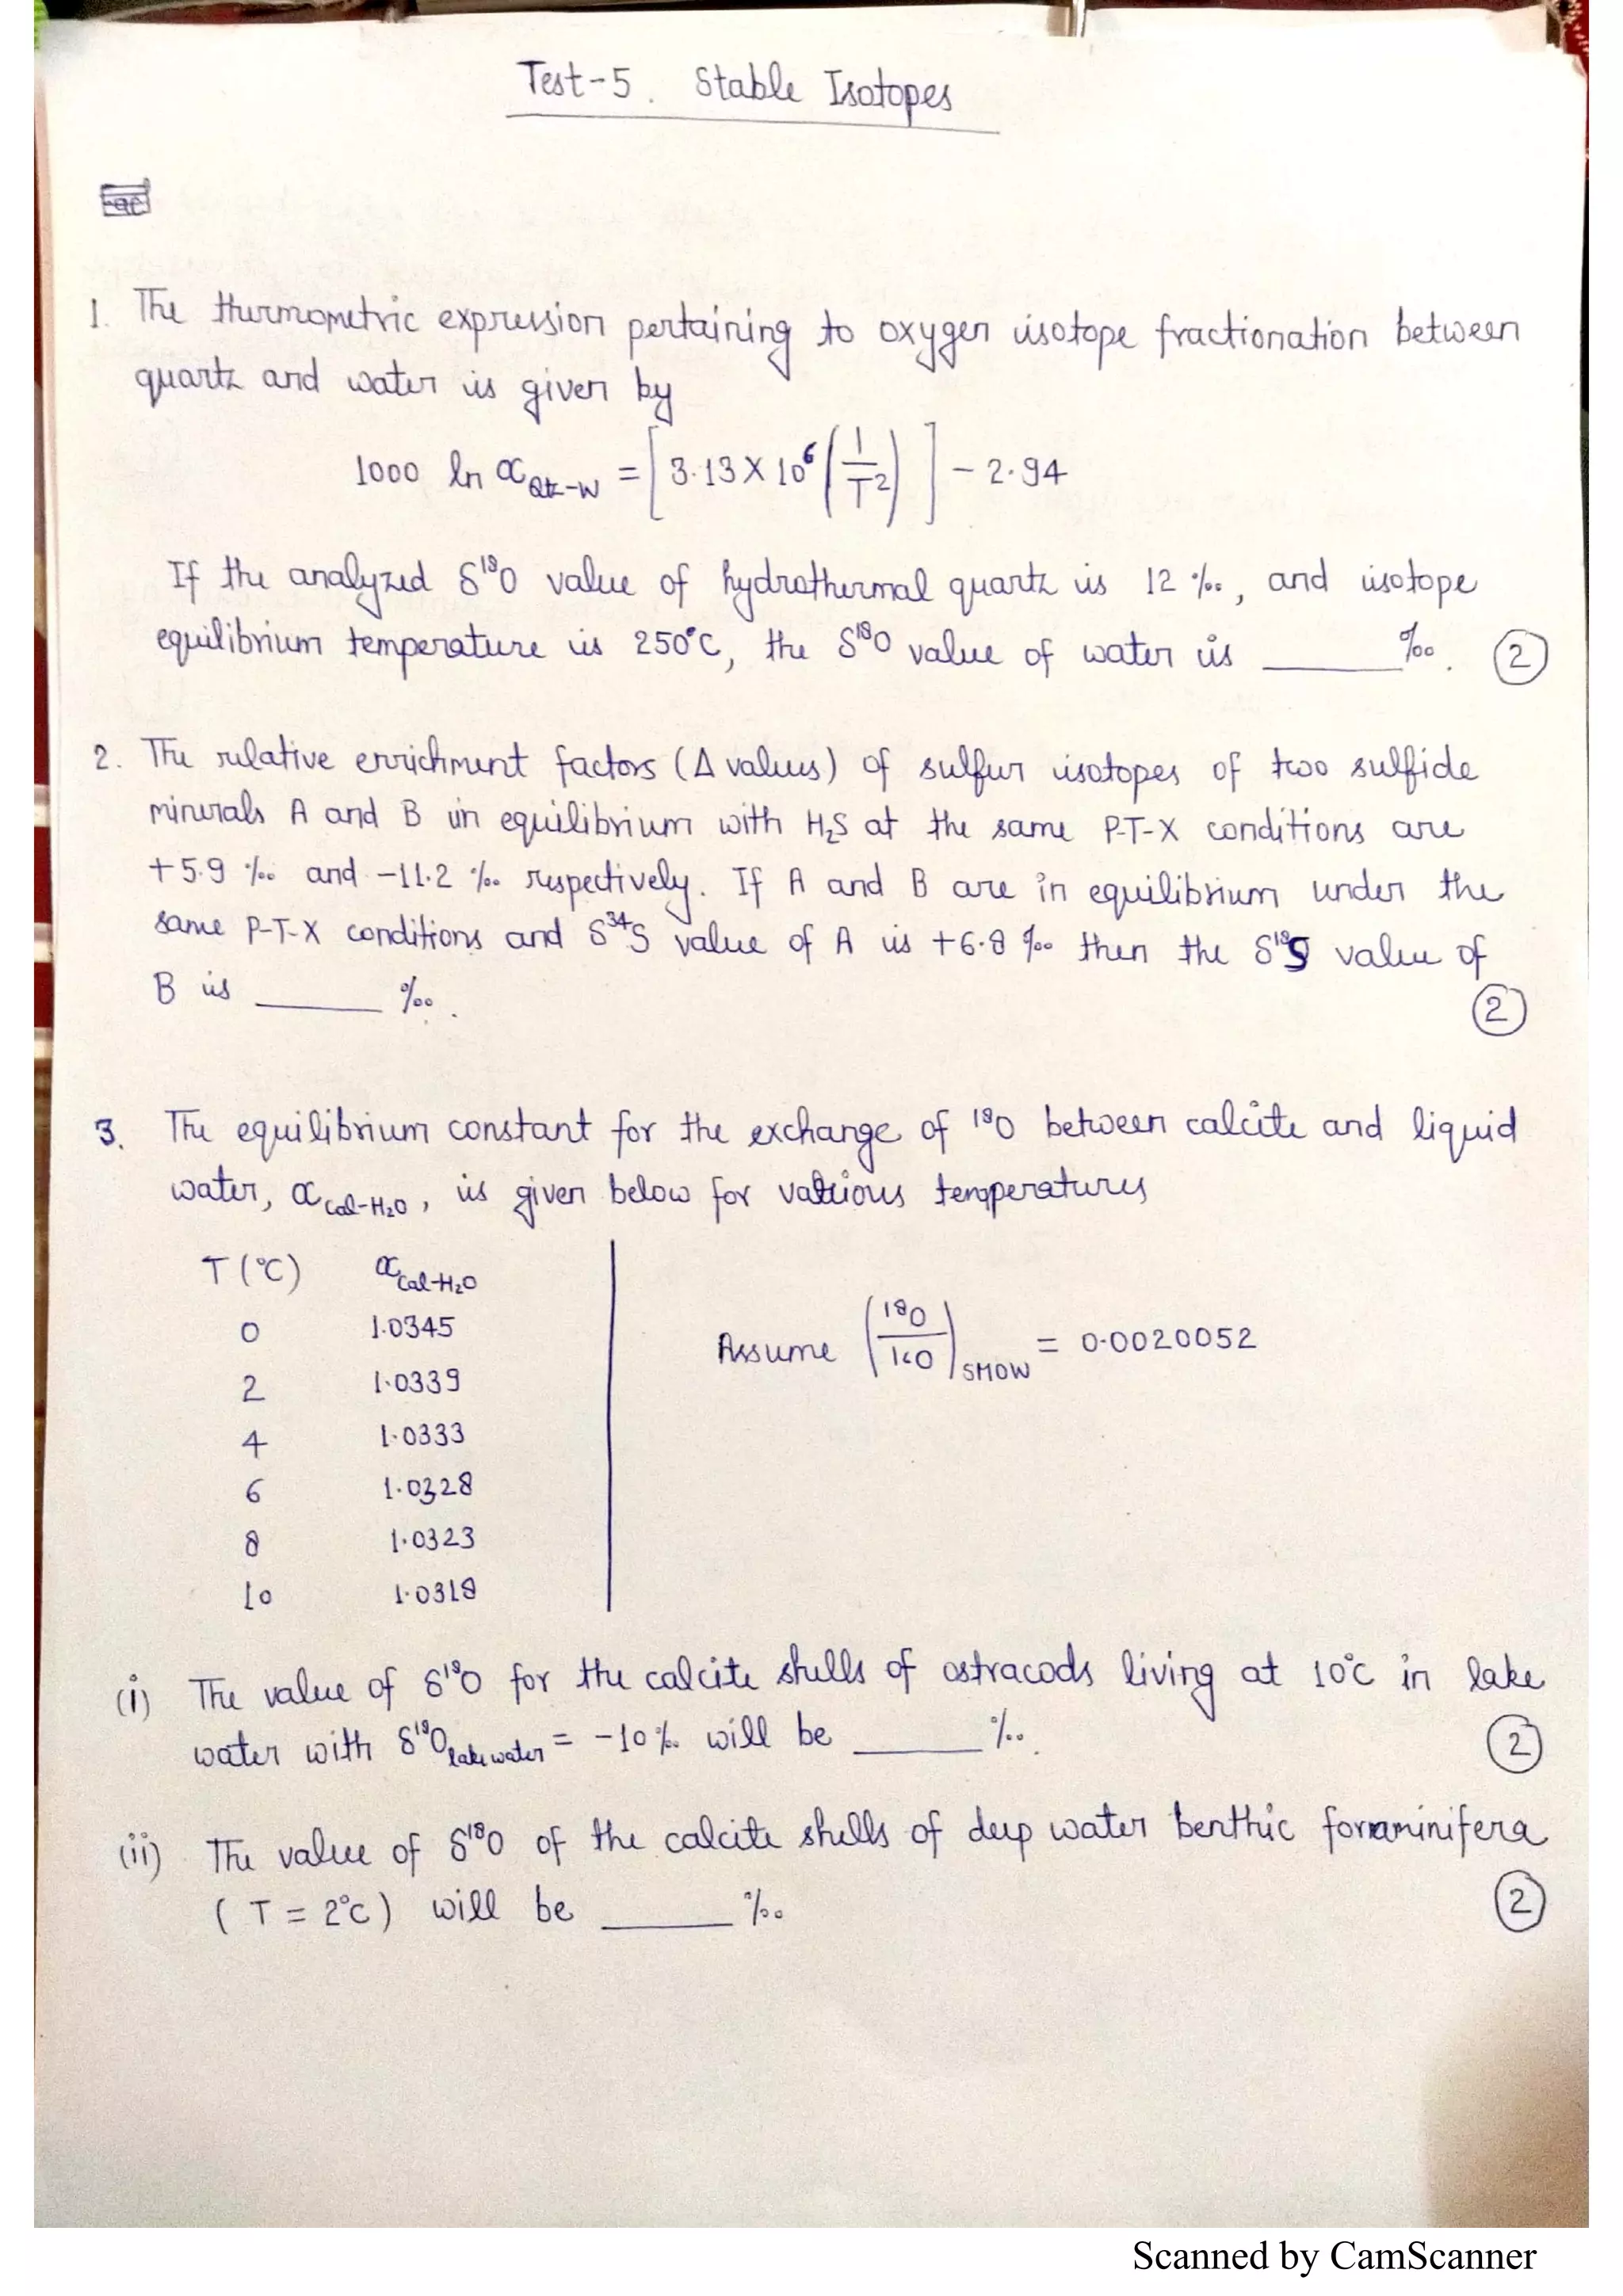 Test-5. Stable Isotopes
1. The thermometric expression pertaining to oxygen isotope fractionation between
quartz and water is given by
1000 ln αQtz-W = [3.13 X 10⁶ (1/T²)] - 2.94
If the analyzed δ¹⁸O value of hydrothermal quartz is 12 ‰, and isotope
equilibrium temperature is 250°C, the δ¹⁸O value of water is ______ ‰. (2)
2. The relative enrichment factors (Δ values) of sulfur isotopes of two sulfide
minerals A and B in equilibrium with H₂S at the same P-T-X conditions are
+5.9 ‰ and -11.2 ‰ respectively. If A and B are in equilibrium under the
same P-T-X conditions and δ³⁴S value of A is +6.8 ‰ then the δ¹⁸S value of
B is ______ ‰.
(2)
3. The equilibrium constant for the exchange of ¹⁸O between calcite and liquid
water, αcal-H₂O, is given below for various temperatures
T (°C) αCal-H₂O
0 1.0345
2 1.0339
4 1.0333
6 1.0328
8 1.0323
10 1.0318
Assume (¹⁸O/¹⁶O)SMOW = 0.0020052
(i) The value of δ¹⁸O for the calcite shells of ostracods living at 10°C in lake
water with δ¹⁸Olake water = -10 ‰ will be ______ ‰. (2)
(ii) The value of δ¹⁸O of the calcite shells of deep water benthic foraminifera
(T = 2°C) will be ______ ‰ (2)
Scanned by CamScanner